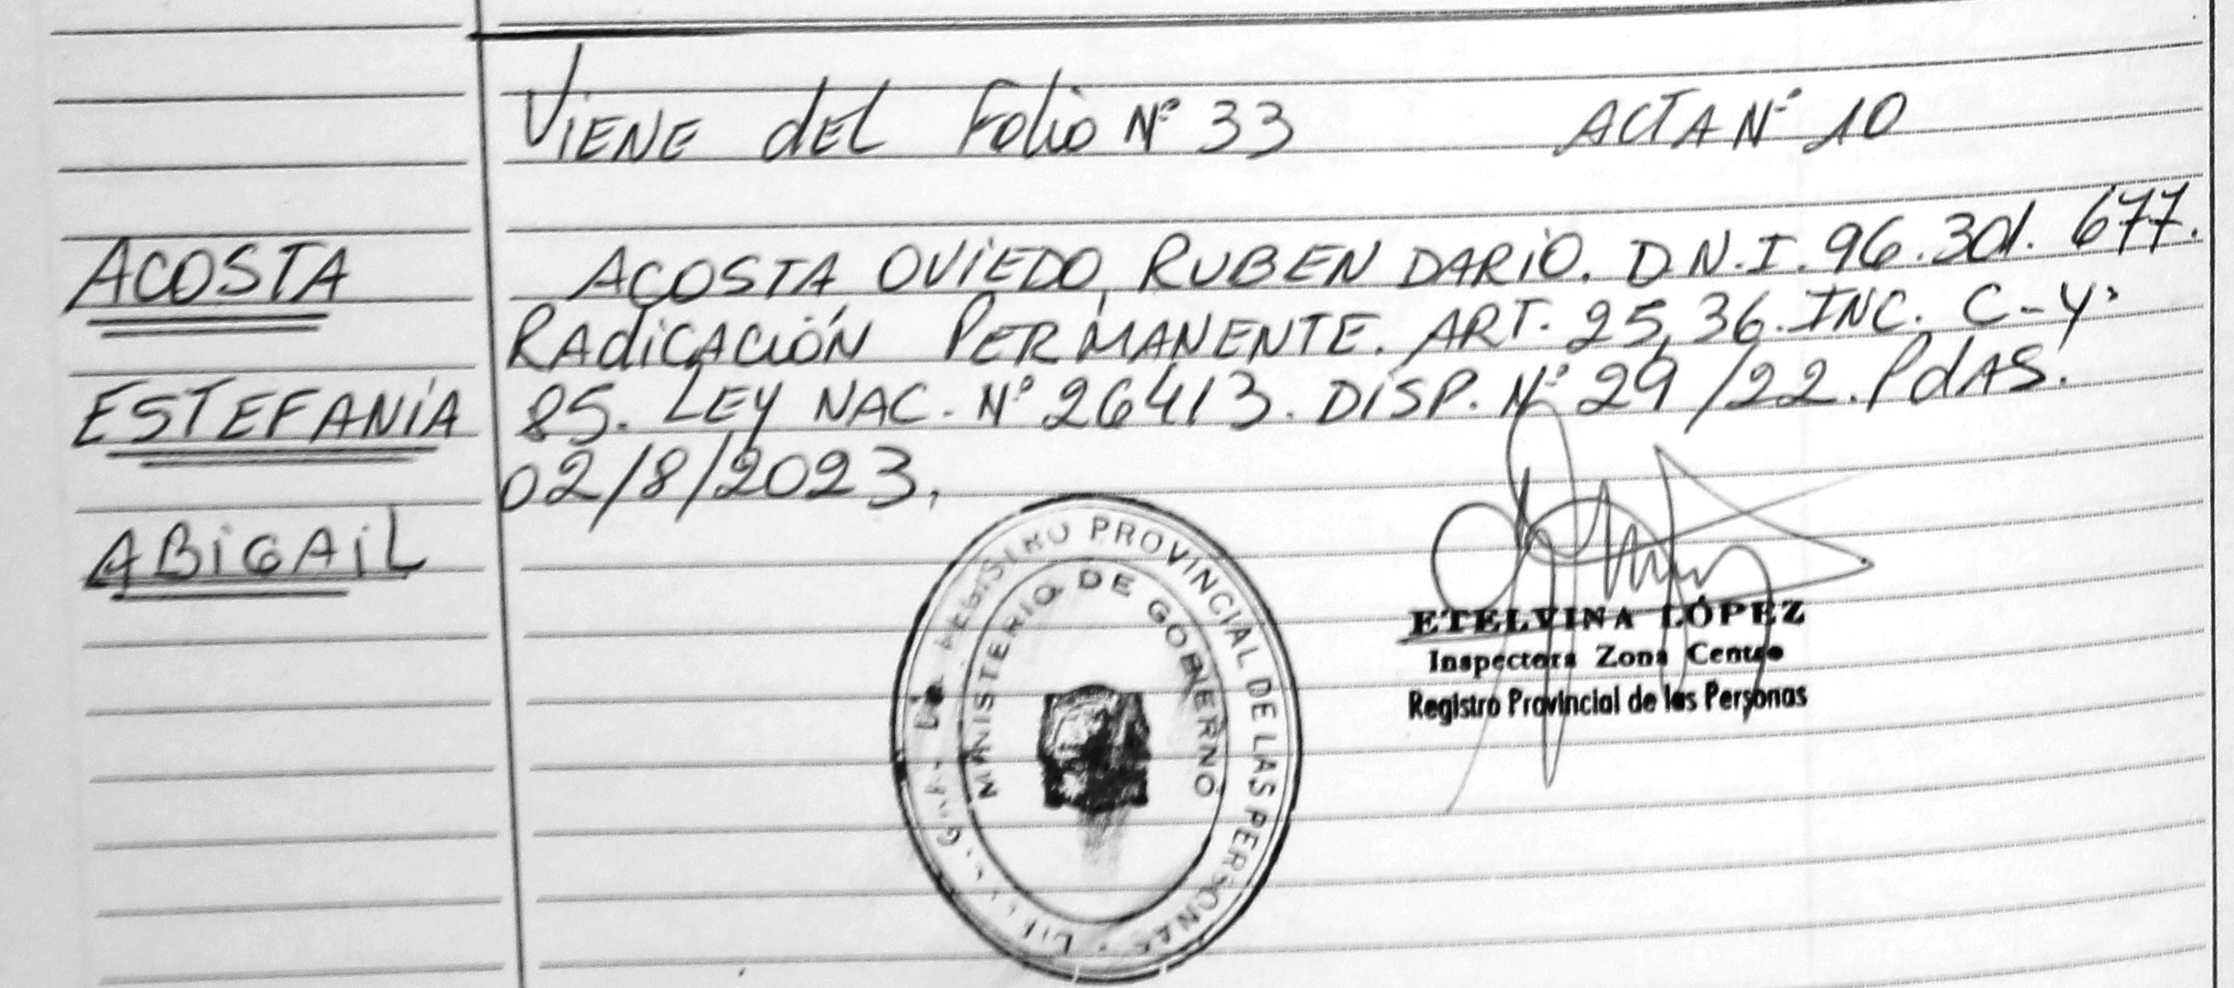 Viene del Folio Nº 33 ACTA Nº 10
ACOSTA
ESTEFANíA
ABiGAiL
ACOSTA OViEDO, RUBEN DARiO. D.N.I. 96.301.677.
RAdiCACIÓN PERMANENTE. ART. 25, 36. INC. C-Y
85. LEY NAC. Nº 26413. DiSP. Nº 29/22. PdAS.
02/8/2023.
REGISTRO PROVINCIAL DE LAS PERSONAS
MINISTERIO DE GOBIERNO
ETELVINA LÓPEZ
Inspectora Zona Centro
Registro Provincial de las Personas